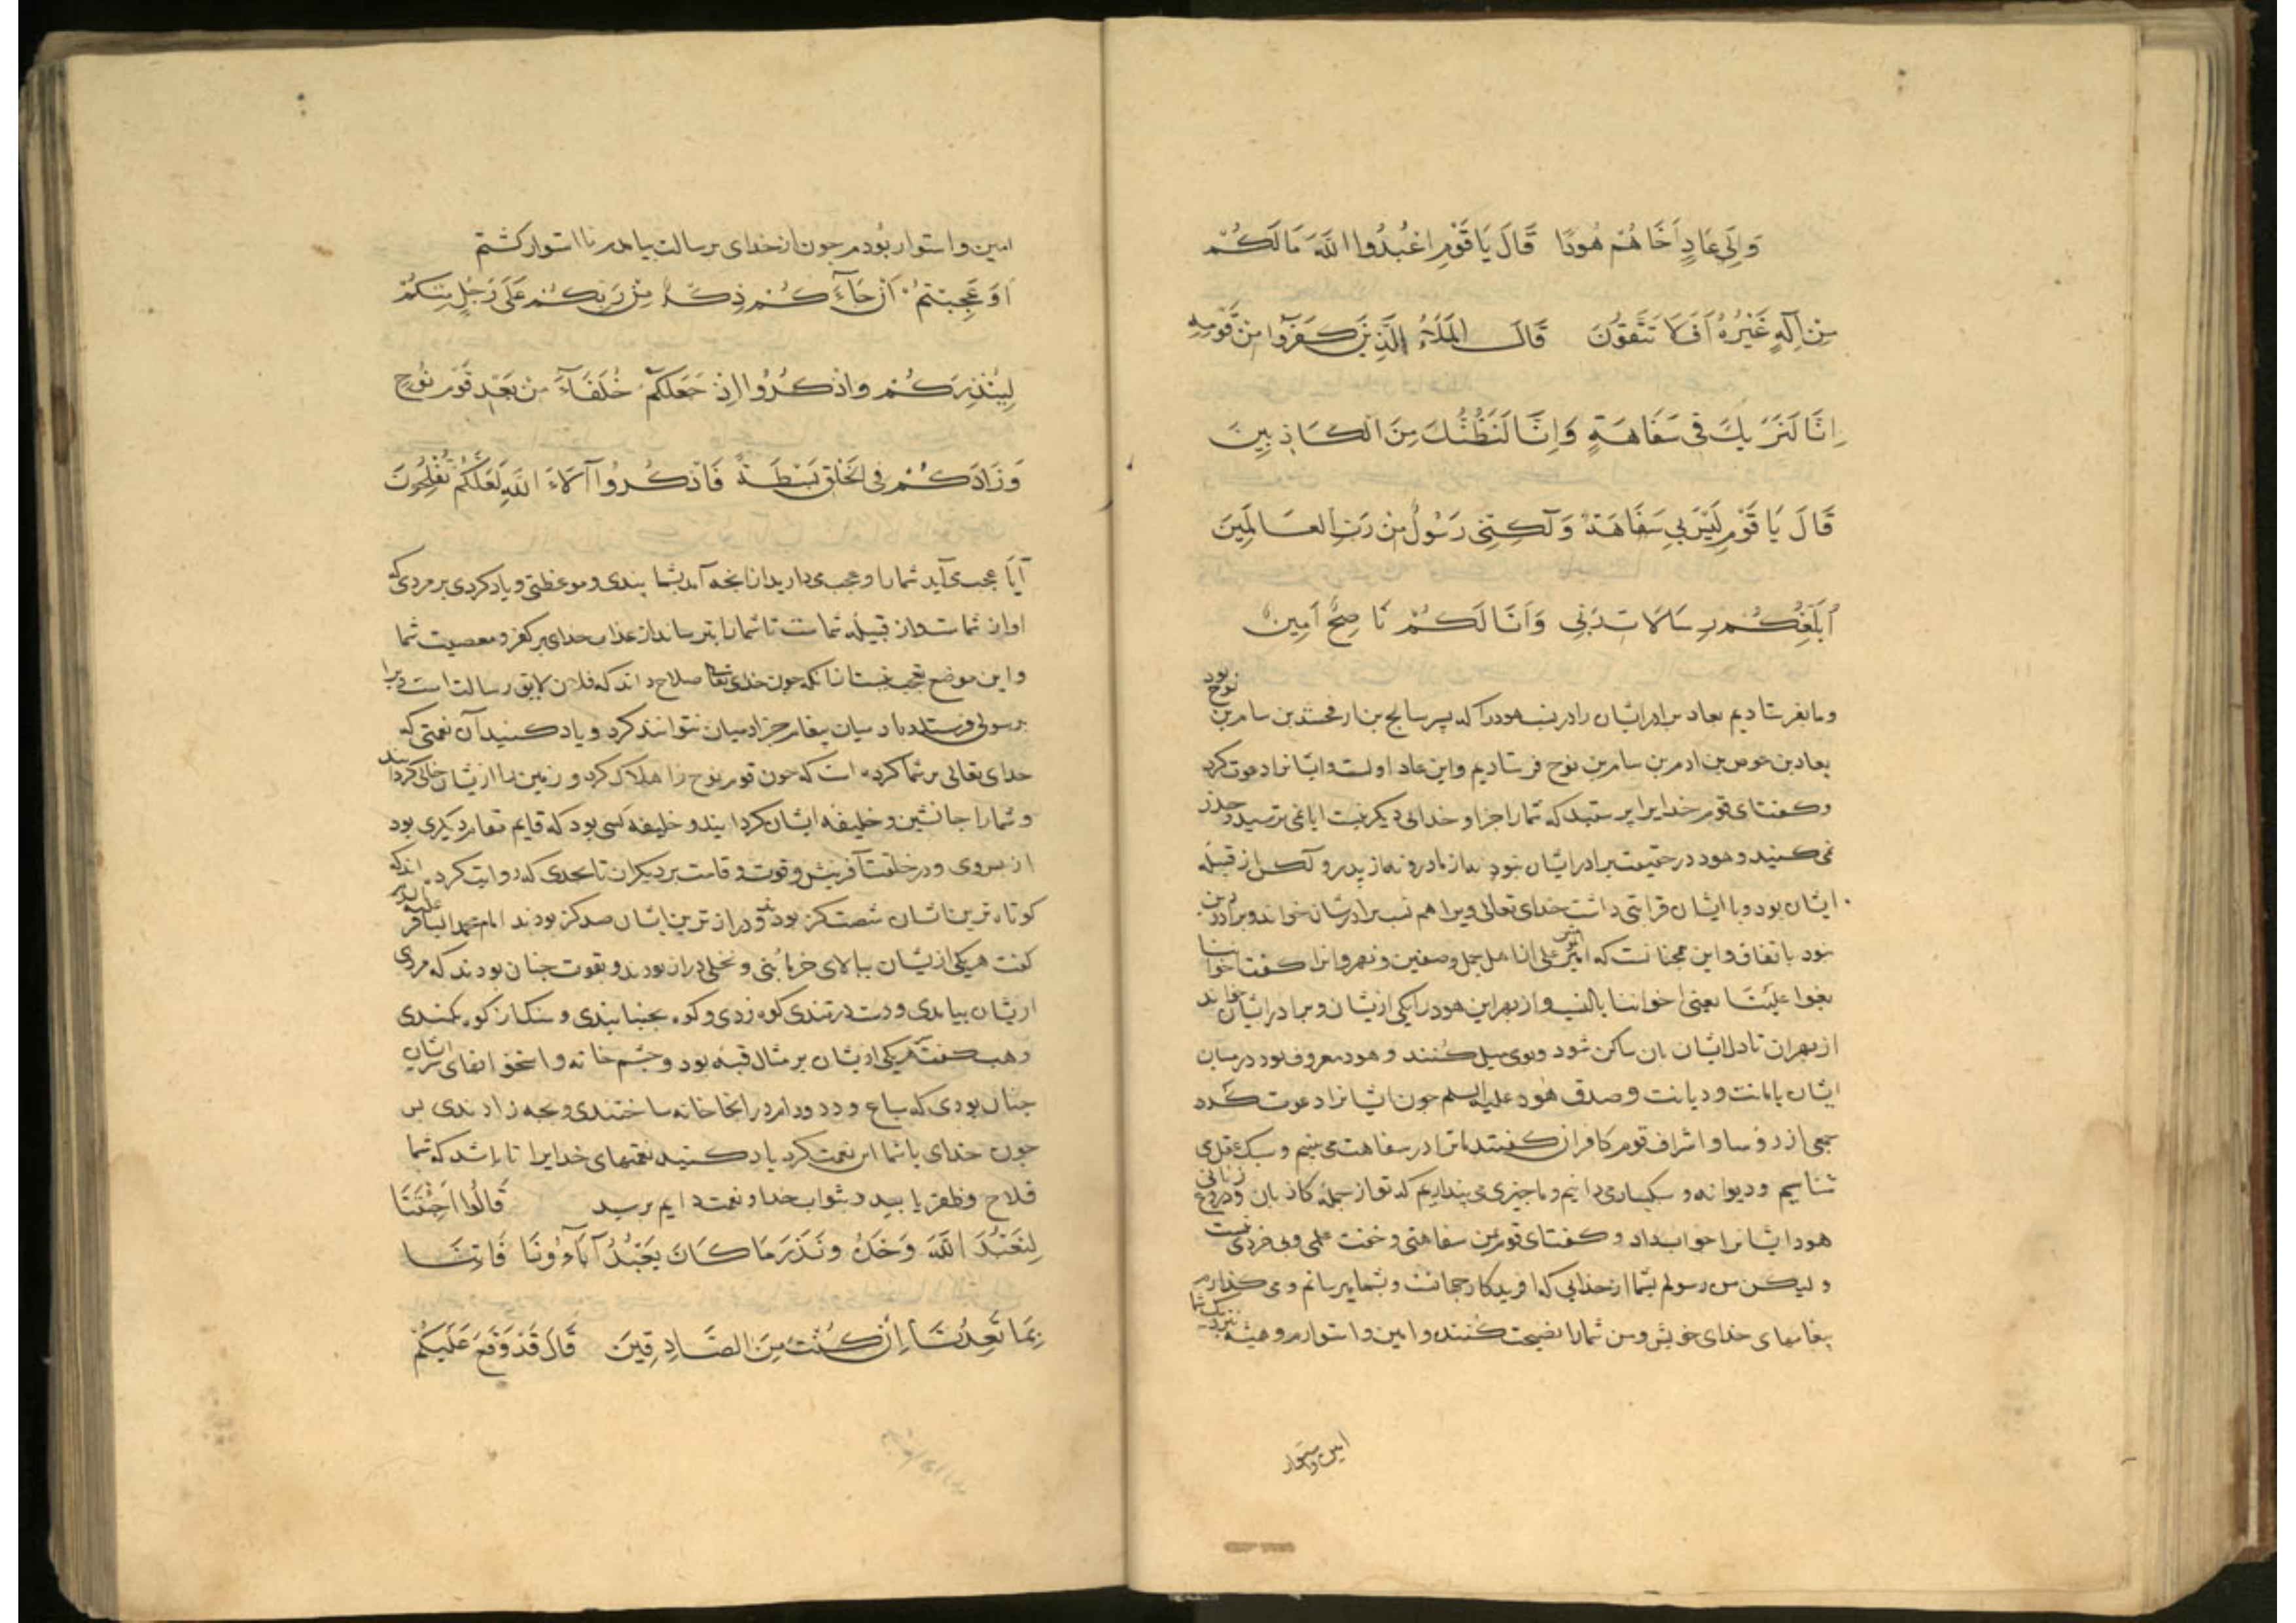 وَاِلَی عَادٍ اَخَاهُمْ هُودًا قَالَ یَا قَوْمِ اعْبُدُوا اللَّهَ مَا لَکُمْ
مِنْ اِلَهٍ غَیْرُهُ اَفَلَا تَتَّقُونَ قَالَ الْمَلَاُ الَّذِینَ کَفَرُوا مِنْ قَوْمِهِ
اِنَّا لَنَرَیکَ فِی سَفَاهَةٍ وَاِنَّا لَنَظُنُّکَ مِنَ الْکَاذِبِینَ
قَالَ یَا قَوْمِ لَیْسَ بِی سَفَاهَةٌ وَلَکِنِّی رَسُولٌ مِنْ رَبِّ الْعَالَمِینَ
اُبَلِّغُکُمْ رِسَالَاتِ رَبِّی وَاَنَا لَکُمْ نَاصِحٌ اَمِینٌ
وما بفرستادیم بعاد برادر ایشان را در نسب هود را که پسر سالح بن ارفخشد بن سام بن نوح بود
بعاد بن عوص بن ادم بن سام بن نوح فرستادیم واین عاد اولست وایشانرا دعوت کرد
وکفت ای قوم خدایرا پرستید که شمارا جز او خدایی دیکر نیست ایا نمی ترسید وحذر
نمی کنید وهود در حقیقت برادر ایشان نبود نه از مادر ونه از پدر ولکن از قبیله
ایشان بود وبا ایشان قرابتی داشت خدای تعالی ویرا هم نسب برادرشان خواند وبرادر دین
نبود باتفاق واین همچنانست که امیر علی اهل جمل وصفین ونهروانرا کفت اخواننا
بغوا علینا یعنی اخواننا بالنسب واز بهر این هود را یکی از ایشان وبرادر ایشان خواند
از بهر ان تا دل ایشان بان ساکن شود وبوی میل کنند وهود معروف بود در میان
ایشان بامانت ودیانت وصدق هود علیه السلم چون ایشانرا دعوت کرد
جمعی از رؤسا واشراف قوم کافران کفتند ما ترا در سفاهت می بینیم وسبک عقل می
شناسیم ودیوانه وسبکسار می دانیم وما چنین می پنداریم که تو از جمله کاذبان ودروغ زنانی
هود ایشانرا جواب داد وکفت ای قوم من سفاهتی وخفت حلمی وبی خردی نیست
ولیکن من رسولم بشما از خدایی که افریدکار جهانست وبشما میرسانم ومی کذارم
پیغامهای خدای خویش ومن شمارا نصیحت کننده وامین واستوارم وهمیشه نزدیک شما
امین واستوار
امین واستوار بودم چون از خدای برسالت بیامدم نااستوار کشتم
اَوَ عَجِبْتُمْ اَنْ جَآءَکُمْ ذِکْرٌ مِنْ رَبِّکُمْ عَلَی رَجُلٍ مِنْکُمْ
لِیُنْذِرَکُمْ وَاذْکُرُوا اِذْ جَعَلَکُمْ خُلَفَآءَ مِنْ بَعْدِ قَوْمِ نُوحٍ
وَزَادَکُمْ فِی الْخَلْقِ بَسْطَةً فَاذْکُرُوا آلَاءَ اللَّهِ لَعَلَّکُمْ تُفْلِحُونَ
آیا عجب می آید شمارا وعجب می دارید از انچه آمد بشما پندی وموعظتی ویاد کردی بر مردی که
او از شماست واز قبیله شماست تا شمارا بترساند از عذاب خدای بر کفر ومعصیت شما
واین موضع تعجب نیست از انکه چون خدای تعالی صلاح داند که فلان لایق رسالت است ویرا
برسولی فرستد ومیان پیغامبر جز ادمیان نتوانند کرد ویاد کنید آن نعمتی که
خدای تعالی بر شما کرده است که چون قوم نوح را هلاک کرد وزمین را از ایشان خالی کردانید
وشمارا جانشین وخلیفه ایشان کردانید وخلیفه کسی بود که قایم مقام دیکری بود
از پس وی ودر خلقت آفرینش وقوت وقامت بر دیکران تا بحدی که روایت کرده اند که
کوتاه ترین ایشان شصت کز بود ودراز ترین ایشان صد کز بودند امام محمد الباقر علیه السلم
کفت هر یکی از ایشان ببالای خرما بنی ونخلی دراز بودند وبقوت چنان بودند که مردی
از ایشان بیامدی ودست در تندی کوه زدی وکوه بجنبانیدی وسنک از کوه بکندی
وهب کفت هر یکی از ایشان بر مثال قبه بود وچشم خانه واستخوان قفای سر ایشان
چنان بودی که سباع ودد ودام در انجا خانه ساختندی وبچه زادندی پس
چون خدای با شما این نعمت کرد یاد کنید نعمتهای خدایرا تا باشد که شما
فلاح وظفر یابید وبثواب خدا ونعمت دایم برسید قَالُوا اَجِئْتَنَا
لِنَعْبُدَ اللَّهَ وَحْدَهُ وَنَذَرَ مَا کَانَ یَعْبُدُ آبَآؤُنَا فَاْتِنَا
بِمَا تَعِدُنَا اِنْ کُنْتَ مِنَ الصَّادِقِینَ قَالَ قَدْ وَقَعَ عَلَیْکُمْ